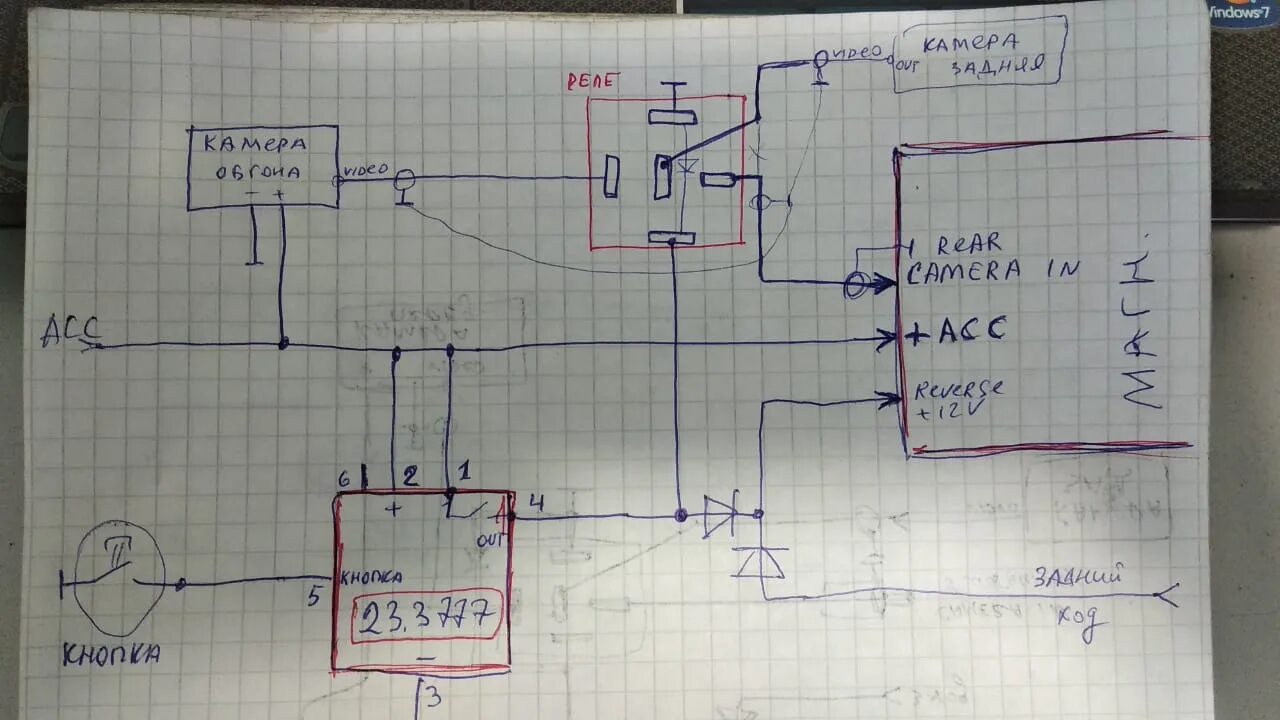 Windows 7
РЕЛЕ
VIDEO
OUT
КАМЕРА
ЗАДНЯЯ
КАМЕРА
ОБГОНА
- +
VIDEO
REAR
CAMERA IN
АСС
+ ACC
Reverse
+12V
МАГН.
6 2 1 4
+
OUT
КНОПКА
5
23.3777
-
3
КНОПКА
ЗАДНИЙ
ХОД